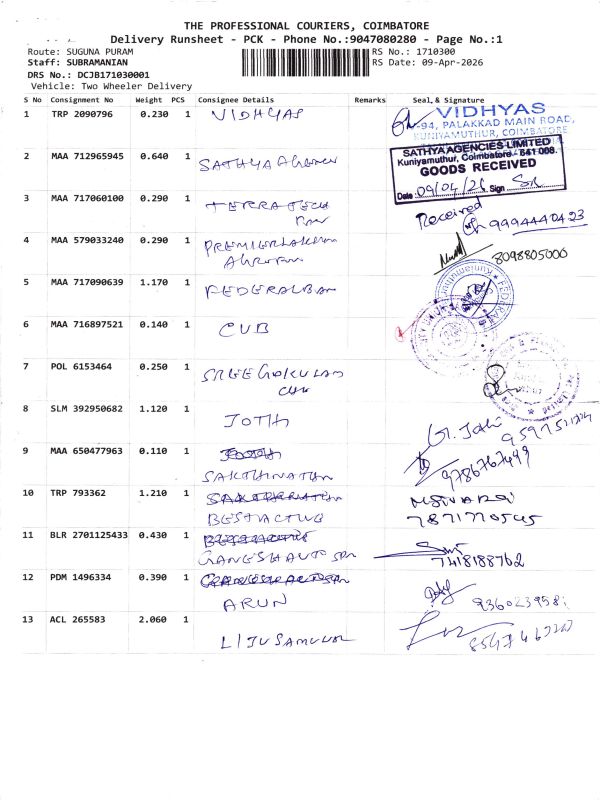 THE PROFESSIONAL COURIERS, COIMBATORE
Delivery Runsheet - PCK - Phone No.:9047080280 - Page No.:1
Route: SUGUNA PURAM
RS No.: 1710300
Staff: SUBRAMANIAN
RS Date: 09-Apr-2026
DRS No.: DCJB171030001
Vehicle: Two Wheeler Delivery
S No Consignment No Weight PCS Consignee Details Remarks Seal & Signature
1 TRP 2090796 0.230 1 VIDHYAS
VIDHYAS
-94, PALAKKAD MAIN ROAD,
KUNIYAMUTHUR, COIMBATORE
2 MAA 712965945 0.640 1 SATHYA
SATHYA AGENCIES LIMITED
Kuniyamuthur, Coimbatore - 641 008.
GOODS RECEIVED
Date 09/04/26 Sign
3 MAA 717060100 0.290 1 TERRA TECH
Received
9994440423
4 MAA 579033240 0.290 1
8098805000
5 MAA 717090639 1.170 1 FEDERAL BAN
6 MAA 716897521 0.140 1 CUB
7 POL 6153464 0.250 1 SREE GOKULAM
8 SLM 392950682 1.120 1 JOTH
9 MAA 650477963 0.110 1
SAKTHINATHN
9786767449
10 TRP 793362 1.210 1
BESTACTIVE
7871770545
11 BLR 2701125433 0.430 1
GANESH AUTO SPR
7418188762
12 PDM 1496334 0.390 1
ARUN
13 ACL 265583 2.060 1
LIJU SAMUVAL